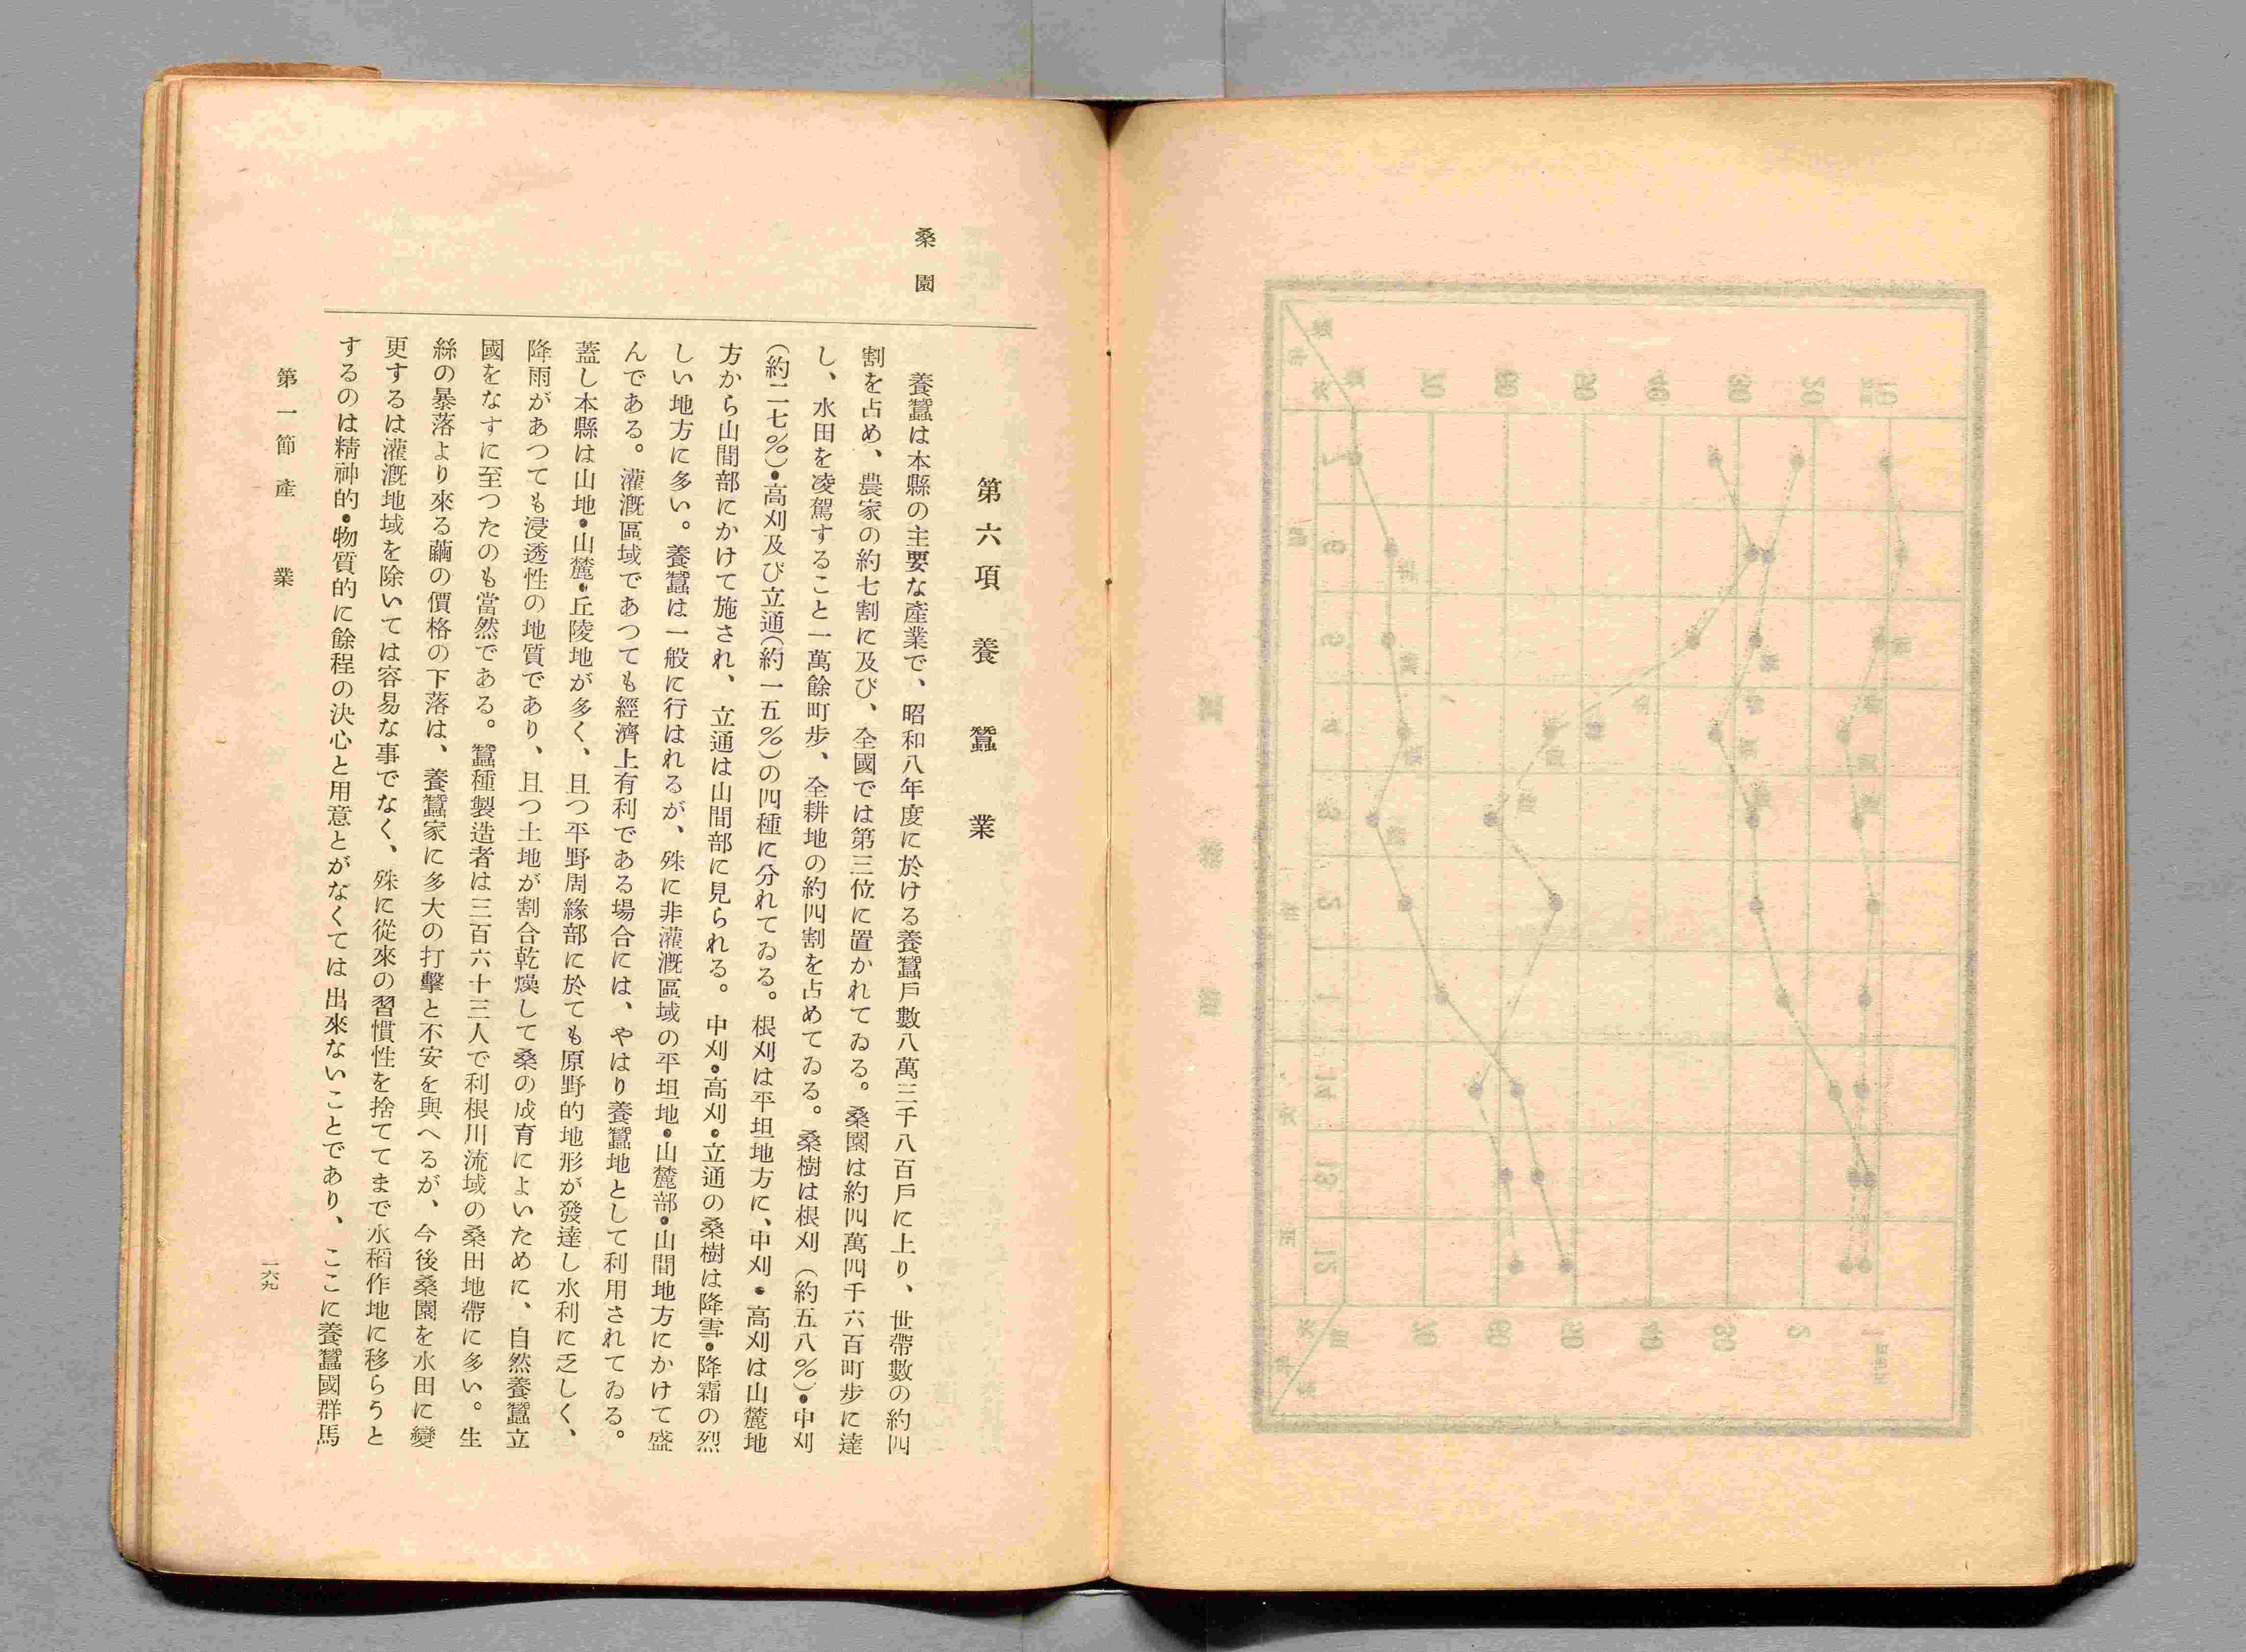 第六項　養蠶業
桑園
養蠶は本縣の主要な產業で、昭和八年度に於ける養蠶戶數八萬三千八百戶に上り、世帶數の約四
割を占め、農家の約七割に及び、全國では第三位に置かれてゐる。桑園は約四萬四千六百町步に達
し、水田を凌駕すること一萬餘町步、全耕地の約四割を占めてゐる。桑樹は根刈（約五八％）・中刈
（約二七％）・高刈及び立通（約一五％）の四種に分れてゐる。根刈は平坦地方に、中刈・高刈は山麓地
方から山間部にかけて施され、立通は山間部に見られる。中刈・高刈・立通の桑樹は降雪・降霜の烈
しい地方に多い。養蠶は一般に行はれるが、殊に非灌漑區域の平坦地・山麓部・山間地方にかけて盛
んである。灌漑區域であつても經濟上有利である場合には、やはり養蠶地として利用されてゐる。
蓋し本縣は山地・山麓・丘陵地が多く、且つ平野周緣部に於ても原野的地形が發達し水利に乏しく、
降雨があつても浸透性の地質であり、且つ土地が割合乾燥して桑の成育によいために、自然養蠶立
國をなすに至つたのも當然である。蠶種製造者は三百六十三人で利根川流域の桑田地帶に多い。生
絲の暴落より來る繭の價格の下落は、養蠶家に多大の打擊と不安を與へるが、今後桑園を水田に變
更するは灌漑地域を除いては容易な事でなく、殊に從來の習慣性を捨ててまで水稻作地に移らうと
するのは精神的・物質的に餘程の決心と用意とがなくては出來ないことであり、ここに養蠶國群馬
第一節　產業
一六九